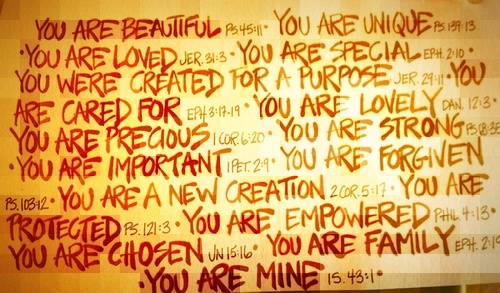 YOU ARE BEAUTIFUL PS.45:11 • YOU ARE UNIQUE PS.139:13
• YOU ARE LOVED JER. 31:3 • YOU ARE SPECIAL EPH. 2:10 •
YOU WERE CREATED FOR A PURPOSE JER. 29:11 • YOU
ARE CARED FOR EPH 3:17-19 • YOU ARE LOVELY DAN. 12:3 •
YOU ARE PRECIOUS 1 COR. 6:20 • YOU ARE STRONG PS 18:35
• YOU ARE IMPORTANT 1 PET. 2:9 • YOU ARE FORGIVEN
PS. 103:12 • YOU ARE A NEW CREATION 2 COR. 5:17 • YOU ARE
PROTECTED PS. 121:3 • YOU ARE EMPOWERED PHIL. 4:13 •
YOU ARE CHOSEN JN 15:16 • YOU ARE FAMILY EPH. 2:19
• YOU ARE MINE IS. 43:1 •